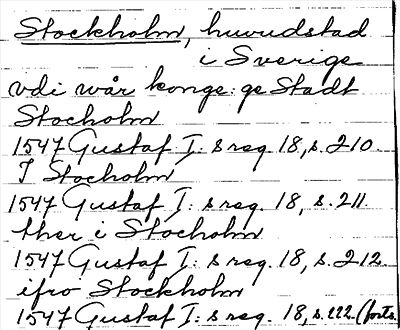 Stockholm, huvudstad
i Sverige
vdi wår konge: ge Stadt
Stocholm
1547 Gustaf I: s reg. 18, s. 210.
I Stocholm
1547 Gustaf I: s reg. 18, s. 211.
ther i Stocholm
1547 Gustaf I: s reg. 18, s. 212.
ifrå Stockholm
1547 Gustaf I: s reg. 18, s. 222. (forts.